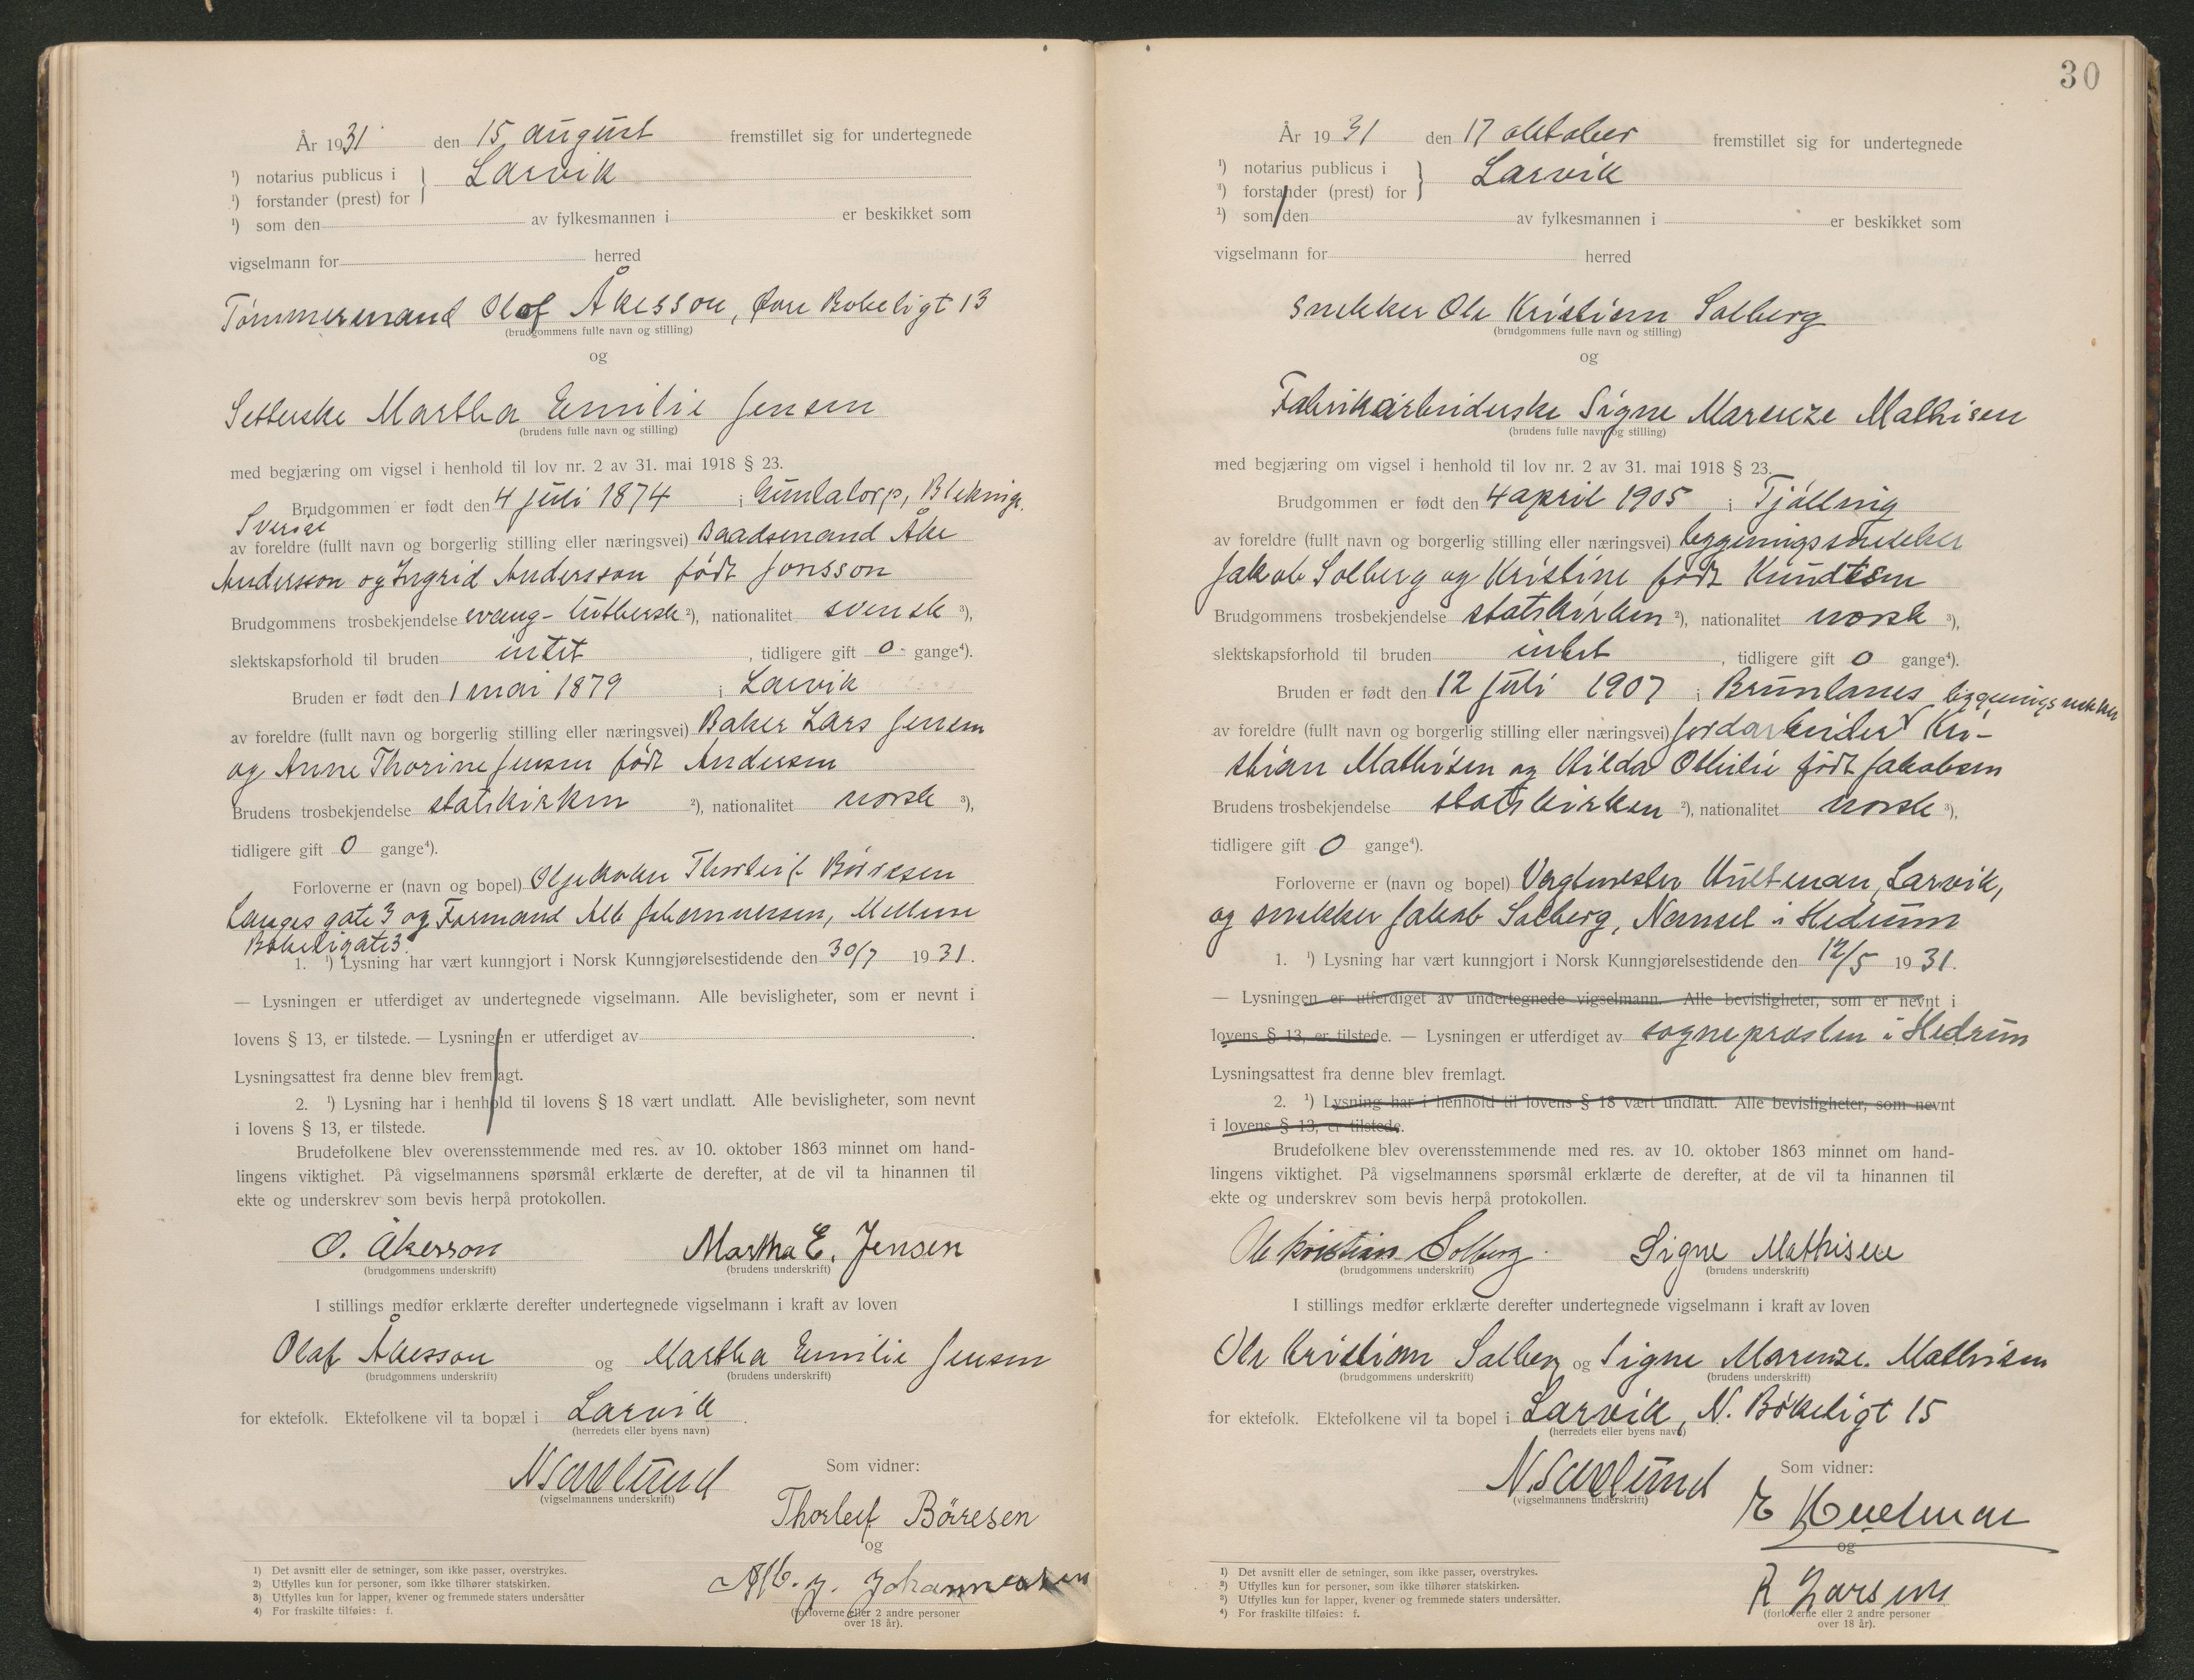 År 1931 den 15 august fremstillet sig for undertegnede
¹) notarius publicus i } Larvik
¹) forstander (prest) for
¹) som den av fylkesmannen i er beskikket som
vigselmann for herred
Tømmermand Olof Åkesson, Øvre Bøkeligt 13
(brudgommens fulle navn og stilling)
og
Setterske Martha Emilie Jensen
(brudens fulle navn og stilling)
med begjæring om vigsel i henhold til lov nr. 2 av 31. mai 1918 § 23.
Brudgommen er født den 4 juli 1874 i Gunlatorp, Blekinge,
Sverige
av foreldre (fullt navn og borgerlig stilling eller næringsvei) Baadsmand Åke
Andersson og Ingrid Andersson født Jonsson
Brudgommens trosbekjendelse evang-luthersk ²), nationalitet svensk ³),
slektskapsforhold til bruden intet , tidligere gift 0 gange⁴).
Bruden er født den 1 mai 1879 i Larvik
av foreldre (fullt navn og borgerlig stilling eller næringsvei) Baker Lars Jensen
og Anne Thorine Jensen født Andersen
Brudens trosbekjendelse statskirken ²), nationalitet norsk ³),
tidligere gift 0 gange⁴).
Forloverne er (navn og bopel) Oljekoker Thorleif Børresen
Langes gate 3 og Formand Alb Johannessen, Mellem
Bøkeligate 3.
1. ¹) Lysning har vært kunngjort i Norsk Kunngjørelsestidende den 30/7 1931.
— Lysningen er utferdiget av undertegnede vigselmann. Alle bevisligheter, som er nevnt i
lovens § 13, er tilstede. — Lysningen er utferdiget av .
Lysningsattest fra denne blev fremlagt.
2. ¹) Lysning har i henhold til lovens § 18 vært undlatt. Alle bevisligheter, som nevnt
i lovens § 13, er tilstede.
Brudefolkene blev overensstemmende med res. av 10. oktober 1863 minnet om hand-
lingens viktighet. På vigselmannens spørsmål erklærte de derefter, at de vil ta hinannen til
ekte og underskrev som bevis herpå protokollen.
O. Åkesson Martha E. Jensen
(brudgommens underskrift) (brudens underskrift)
I stillings medfør erklærte derefter undertegnede vigselmann i kraft av loven
Olaf Åkesson og Martha Emilie Jensen
(brudgommens underskrift) (brudens underskrift)
for ektefolk. Ektefolkene vil ta bopæl i Larvik .
(herredets eller byens navn)
Som vidner:
N Saxlund
(vigselmannens underskrift)
Thorleif Børresen
og
Alb. J. Johannessen
(forloverne eller 2 andre personer
over 18 år).
1) Det avsnitt eller de setninger, som ikke passer, overstrykes.
2) Utfylles kun for personer, som ikke tilhører statskirken.
3) Utfylles kun for lapper, kvener og fremmede staters undersåtter
4) For fraskilte tilføies: f.
30
År 1931 den 17 oktober fremstillet sig for undertegnede
¹) notarius publicus i } Larvik
¹) forstander (prest) for
¹) som den av fylkesmannen i er beskikket som
vigselmann for herred
Snekker Ole Kristian Solberg
(brudgommens fulle navn og stilling)
og
Fabrikarbeiderske Signe Marenze Mathisen
(brudens fulle navn og stilling)
med begjæring om vigsel i henhold til lov nr. 2 av 31. mai 1918 § 23.
Brudgommen er født den 4 april 1905 i Tjølling
av foreldre (fullt navn og borgerlig stilling eller næringsvei) bygningssnekker
Jakob Solberg og Kristine født Knudtsen
Brudgommens trosbekjendelse statskirken ²), nationalitet norsk ³),
slektskapsforhold til bruden intet , tidligere gift 0 gange⁴).
Bruden er født den 12 juli 1907 i Brunlanes bygningssnekker
av foreldre (fullt navn og borgerlig stilling eller næringsvei) jordarbeider Kri-
stian Mathisen og Hilda Othilie født Jakobsen
Brudens trosbekjendelse statskirken ²), nationalitet norsk ³),
tidligere gift 0 gange⁴).
Forloverne er (navn og bopel) Hultman, Larvik,
og snekker Jakob Solberg, Nanset i Hedrum
1. ¹) Lysning har vært kunngjort i Norsk Kunngjørelsestidende den 12/5 1931.
— Lysningen er utferdiget av undertegnede vigselmann. Alle bevisligheter, som er nevnt i
lovens § 13, er tilstede. — Lysningen er utferdiget av sognepresten i Hedrum
Lysningsattest fra denne blev fremlagt.
2. ¹) Lysning har i henhold til lovens § 18 vært undlatt. Alle bevisligheter, som nevnt
i lovens § 13, er tilstede.
Brudefolkene blev overensstemmende med res. av 10. oktober 1863 minnet om hand-
lingens viktighet. På vigselmannens spørsmål erklærte de derefter, at de vil ta hinannen til
ekte og underskrev som bevis herpå protokollen.
Ole Kristian Solberg. Signe Mathisen
(brudgommens underskrift) (brudens underskrift)
I stillings medfør erklærte derefter undertegnede vigselmann i kraft av loven
Ole Kristian Solberg og Signe Marenze Mathisen
(brudgommens underskrift) (brudens underskrift)
for ektefolk. Ektefolkene vil ta bopel i Larvik, N. Bøkeligt 15
(herredets eller byens navn)
Som vidner:
N. Saxlund
(vigselmannens underskrift)
og
R Larsen
(forloverne eller 2 andre personer
over 18 år).
1) Det avsnitt eller de setninger, som ikke passer, overstrykes.
2) Utfylles kun for personer, som ikke tilhører statskirken.
3) Utfylles kun for lapper, kvener og fremmede staters undersåtter.
4) For fraskilte tilføies: f.